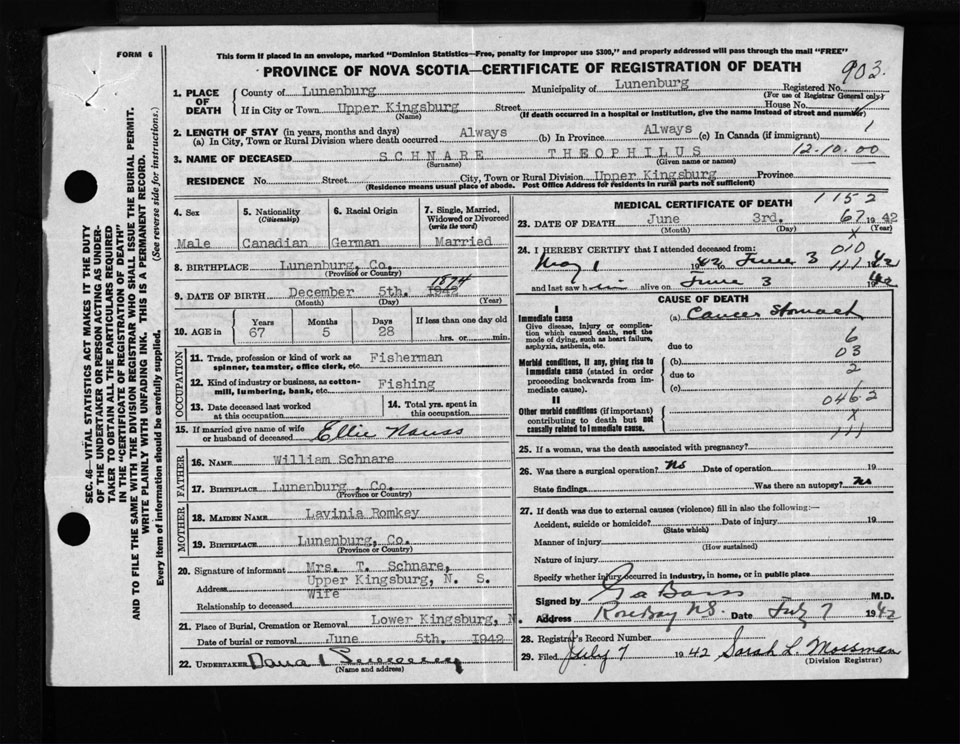 FORM 6
This form if placed in an envelope, marked "Dominion Statistics—Free, penalty for improper use $300," and properly addressed will pass through the mail "FREE"
PROVINCE OF NOVA SCOTIA—CERTIFICATE OF REGISTRATION OF DEATH
903.
1. PLACE OF DEATH
County of Lunenburg Municipality of Lunenburg Registered No.
(For use of Registrar General only)
If in City or Town Upper Kingsburg Street House No.
(Name) (If death occurred in a hospital or institution, give the name instead of street and number)
2. LENGTH OF STAY (in years, months and days)
(a) In City, Town or Rural Division where death occurred Always (b) In Province Always (c) In Canada (if immigrant) 1
3. NAME OF DECEASED SCHNARE THEOPHILUS 12.10.00
(Surname) (Given name or names)
RESIDENCE No. Street City, Town or Rural Division Upper Kingsburg Province
(Residence means usual place of abode. Post Office Address for residents in rural parts not sufficient)
4. Sex Male
5. Nationality (Citizenship) Canadian
6. Racial Origin German
7. Single, Married, Widowed or Divorced (write the word) Married
8. BIRTHPLACE Lunenburg, Co.
(Province or Country)
9. DATE OF BIRTH December 5th. 1942 1874
(Month) (Day) (Year)
10. AGE in Years 67 Months 5 Days 28 If less than one day old hrs. or min.
OCCUPATION
11. Trade, profession or kind of work as spinner, teamster, office clerk, etc. Fisherman
12. Kind of industry or business, as cotton-mill, lumbering, bank, etc. Fishing
13. Date deceased last worked at this occupation
14. Total yrs. spent in this occupation
15. If married give name of wife or husband of deceased Ellie Nauss
FATHER
16. NAME William Schnare
17. BIRTHPLACE Lunenburg, Co.
(Province or Country)
MOTHER
18. MAIDEN NAME Lavinia Romkey
19. BIRTHPLACE Lunenburg, Co.
(Province or Country)
20. Signature of informant Mrs. T. Schnare,
Address Upper Kingsburg, N. S.
Relationship to deceased Wife
21. Place of Burial, Cremation or Removal Lower Kingsburg, N.
Date of burial or removal June 5th. 1942
22. UNDERTAKER
(Name and address)
MEDICAL CERTIFICATE OF DEATH 1152
23. DATE OF DEATH June 3rd. 67 1942
(Month) (Day) (Year)
x
010
111
24. I HEREBY CERTIFY that I attended deceased from:
May 1 1942 to June 3 1942
and last saw him alive on June 3 1942
CAUSE OF DEATH
I
Immediate cause
Give disease, injury or complication which caused death, not the mode of dying, such as heart failure, asphyxia, asthenia, etc.
(a) Cancer Stomach
due to
Morbid conditions, if any, giving rise to immediate cause (stated in order proceeding backwards from immediate cause).
(b)
due to
(c)
6
03
2
1
0462
x
111
II
Other morbid conditions (if important) contributing to death but not causally related to immediate cause.
25. If a woman, was the death associated with pregnancy?
26. Was there a surgical operation? No Date of operation 19
State findings Was there an autopsy? No
27. If death was due to external causes (violence) fill in also the following:—
Accident, suicide or homicide? Date of injury 19
(State which)
Manner of injury
(How sustained)
Nature of injury
Specify whether injury occurred in industry, in home, or in public place
Signed by M.D.
Address Rose Bay N.S. Date July 7 1942
28. Registrar's Record Number
29. Filed July 7 1942 Sarah L. Mossman
(Division Registrar)
SEC. 46—VITAL STATISTICS ACT MAKES IT THE DUTY
OF THE UNDERTAKER OR PERSON ACTING AS UNDER-
TAKER TO OBTAIN ALL THE PARTICULARS REQUIRED
IN THE "CERTIFICATE OF REGISTRATION OF DEATH"
AND TO FILE THE SAME WITH THE DIVISION REGISTRAR WHO SHALL ISSUE THE BURIAL PERMIT.
WRITE PLAINLY WITH UNFADING INK. THIS IS A PERMANENT RECORD.
Every item of information should be carefully supplied. (See reverse side for instructions.)